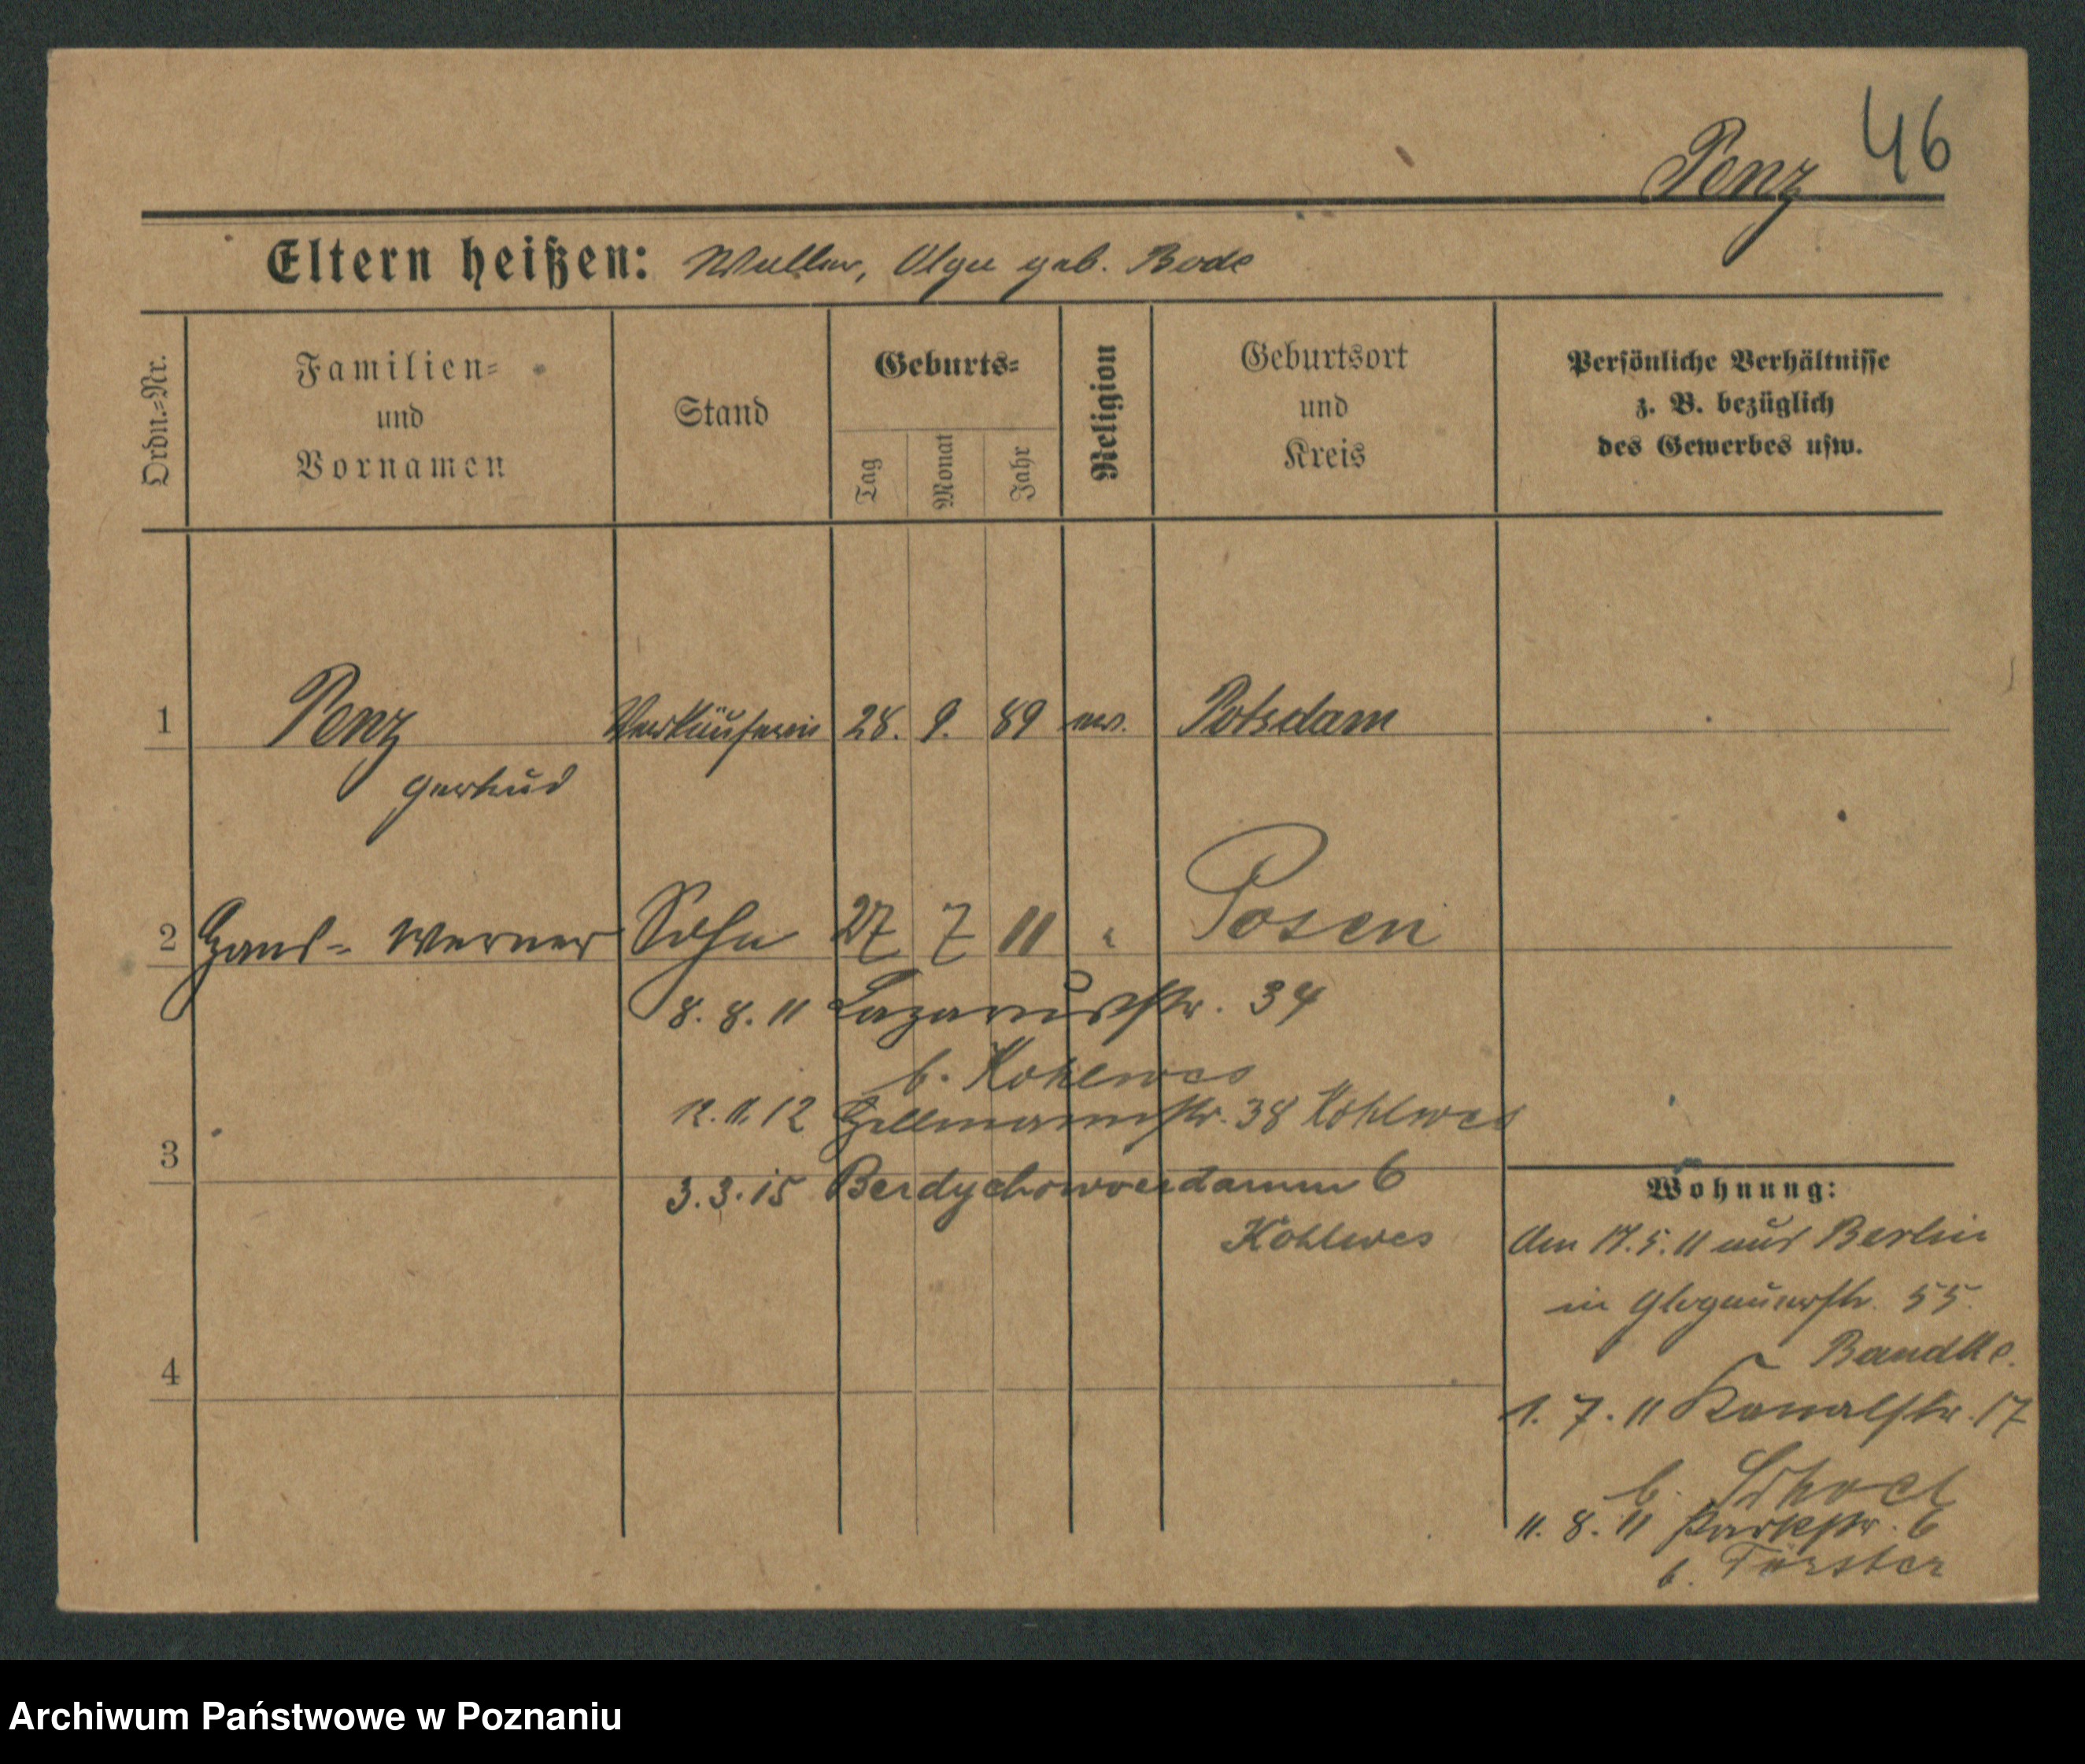 46
Penz
Eltern heißen: Walter, Olga geb. Bode
Ordn.=Nr.
Familien=
und
Vornamen
Stand
Geburts=
Tag
Monat
Jahr
Religion
Geburtsort
und
Kreis
Persönliche Verhältnisse
z. B. bezüglich
des Gewerbes usw.
1 Penz Verkäuferin 28. 9. 89 ev. Potsdam
Gertrud
2 Hans- Werner Sohn 27 7 11 " Posen
8. 8. 11 Lazarusstr. 34
b. Kohlwes
12.11.12 Hellmannstr. 38 Kohlwes
3
3.3.15 Berdychowoerdamm 6
Kohlwes
4
Wohnung:
Am 17.5.11 aus Berlin
in Glogauerstr. 55.
Bandtke.
1. 7. 11 Kanalstr. 17
b.
11. 8. 11 Parkstr. 6
b. Förster
Archiwum Państwowe w Poznaniu